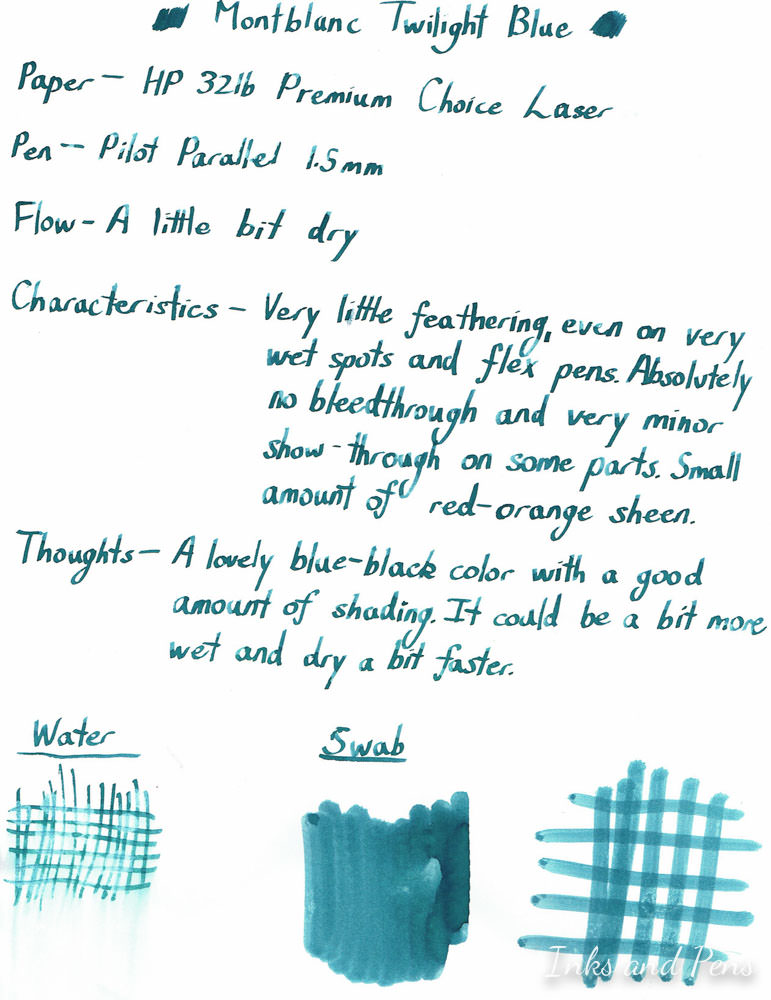 Montblanc Twilight Blue
Paper - HP 32lb Premium Choice Laser
Pen - Pilot Parallel 1.5mm
Flow - A little bit dry
Characteristics - Very little feathering, even on very
wet spots and flex pens. Absolutely
no bleedthrough and very minor
show-through on some parts. Small
amount of red-orange sheen.
Thoughts - A lovely blue-black color with a good
amount of shading. It could be a bit more
wet and dry a bit faster.
Water
Swab
Inks and Pens